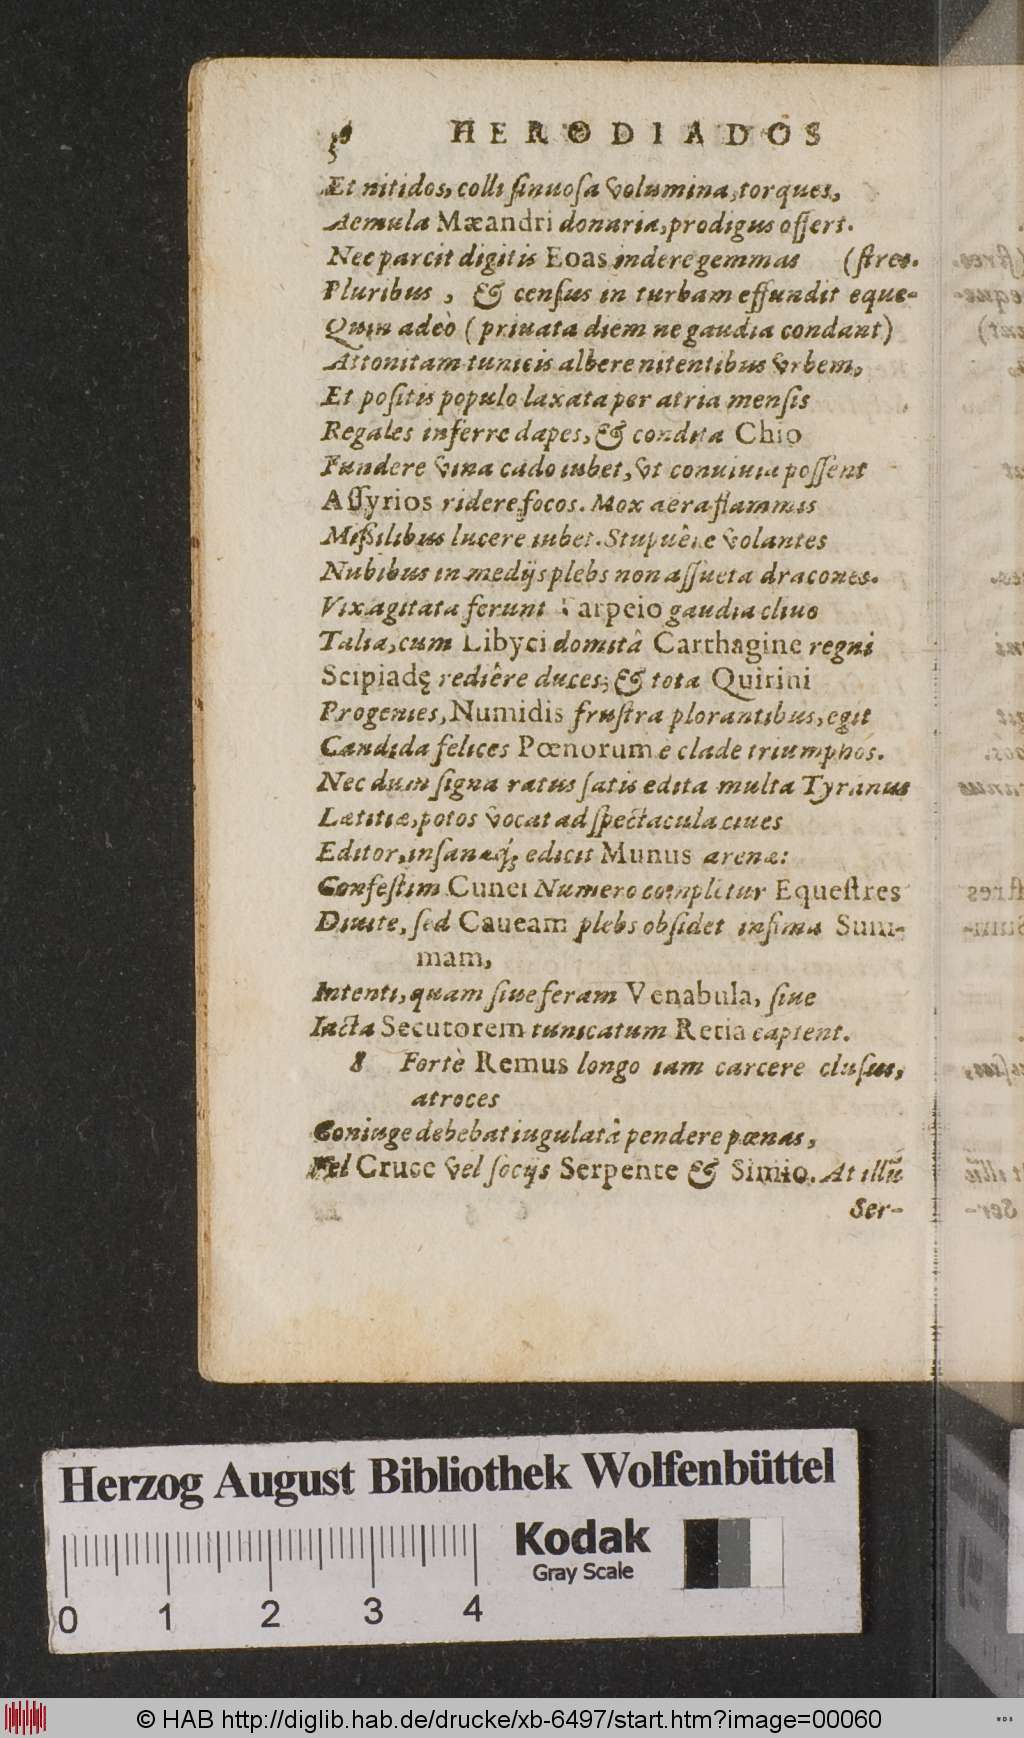 HERODIADOS
Et nitidos, colli sinuosa volumina, torques,
Aemula Mæandri donaria, prodigus offert.
Nec parcit digitis Eoas indere gemmas (stres.
Pluribus, & census in turbam effundit eque-
Quin adeò (priuata diem ne gaudia condant)
Attonitam tunicis albere nitentibus vrbem,
Et positis populo laxata per atria mensis
Regales inferre dapes, & condita Chio
Fundere vina cado iubet, vt conuiuia possent
Assyrios ridere focos. Mox aera flammis
Missilibus lucere iubet. Stupuêre volantes
Nubibus in medijs plebs non assueta dracones.
Vix agitata ferunt Tarpeio gaudia cliuo
Talia, cum Libyci domitâ Carthagine regni
Scipiadę rediêre duces; & tota Quirini
Progenies, Numidis frustra plorantibus, egit
Candida felices Pœnorum e clade triumphos.
Nec dum signa ratus satis edita multa Tyranus
Lætitiæ, potos vocat ad spectacula ciues
Editor, insanæq́; edicit Munus arenæ:
Confestim Cunei Numero complētur Equestres
Diuite, sed Caueam plebs obsidet infima Sum-
mam,
Intenti, quam siue feram Venabula, siue
Iacta Secutorem tunicatum Retia captent.
8 Fortè Remus longo iam carcere clusus,
atroces
Coniuge debebat iugulatâ pendere pœnas,
Vel Cruce vel socijs Serpente & Simio. At illũ
Ser-
Herzog August Bibliothek Wolfenbüttel
Kodak
Gray Scale
0 1 2 3 4
© HAB http://diglib.hab.de/drucke/xb-6497/start.htm?image=00060